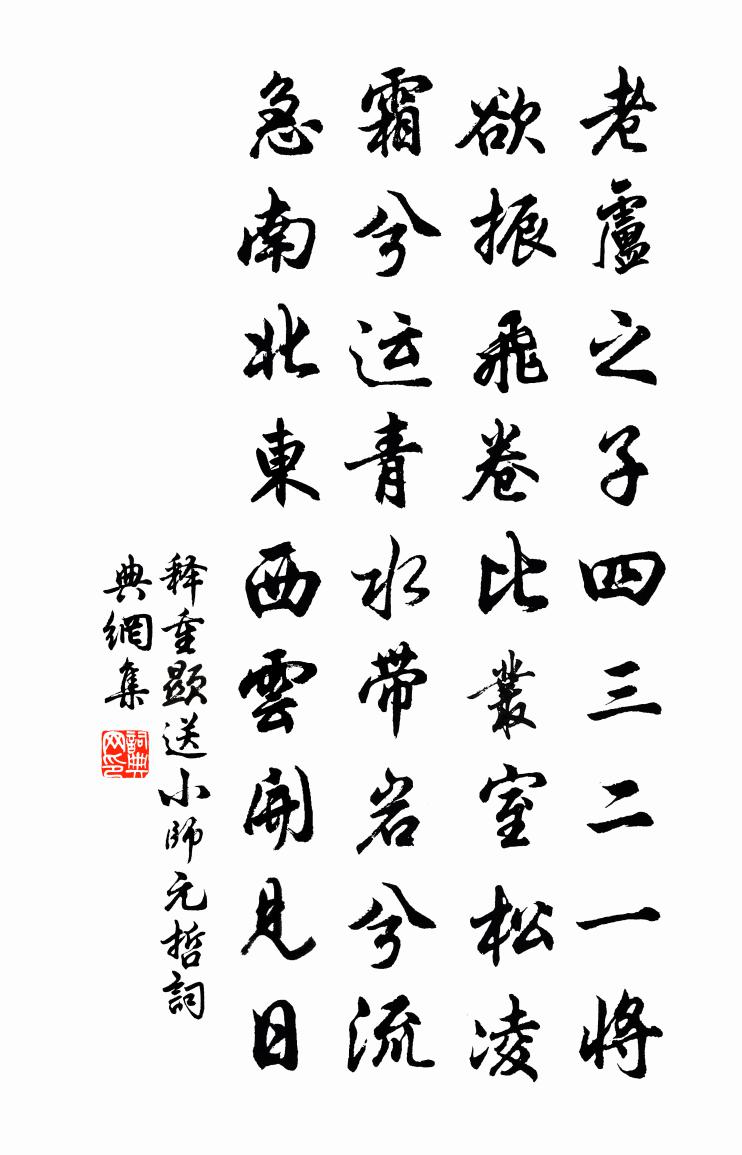 老盧之子四三二一將
欲振飛卷比叢室松凌
霜兮运青水帶岩兮流
急南北東西雲開見日
释重顯送小師元哲詞
典網集
詞典网印